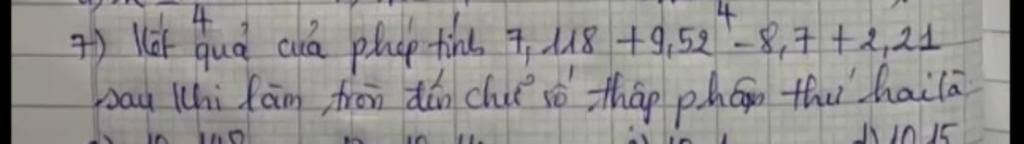 7) Kết quả của phép tính 7,118 + 9,52 - 8,7 + 2,21
4 4
sau khi làm tròn đến chữ số thập phân thứ hai là
d) 10,15